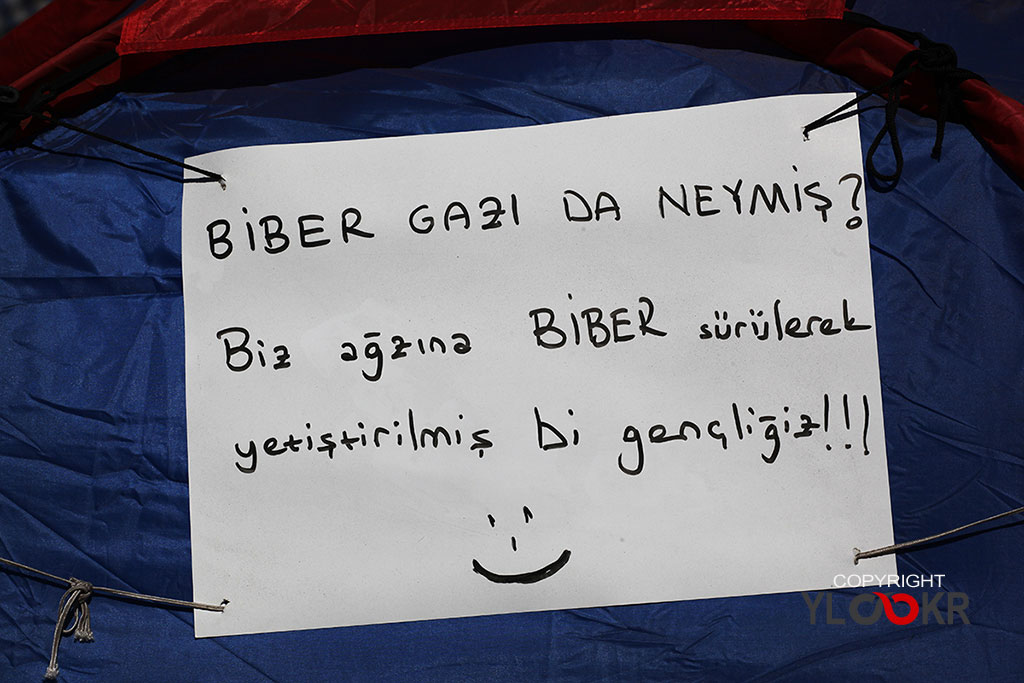 BİBER GAZI DA NEYMİŞ?
Biz ağzına BİBER sürülerek
yetiştirilmiş bi gençliğiz!!!
COPYRIGHT
YLOOKR